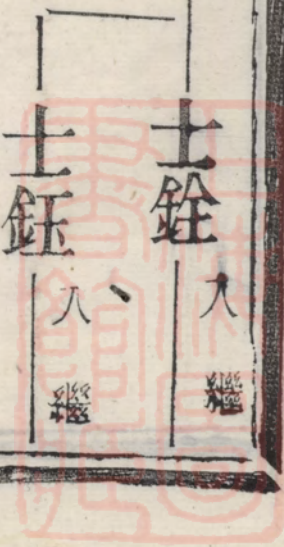 士銓
入繼
士鈺
入繼